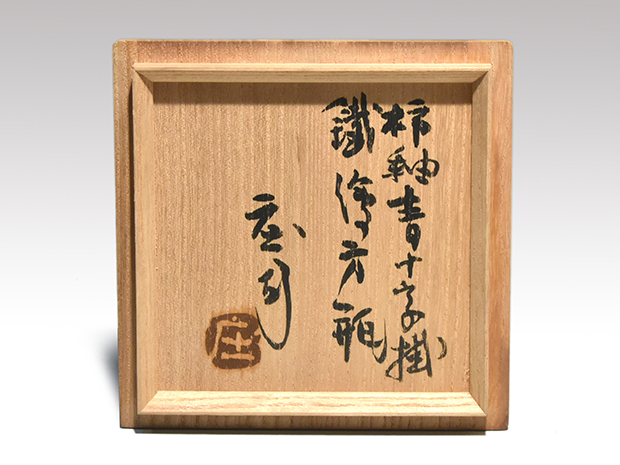 柿釉青十字掛
鐵繪方瓶
庄司
庄